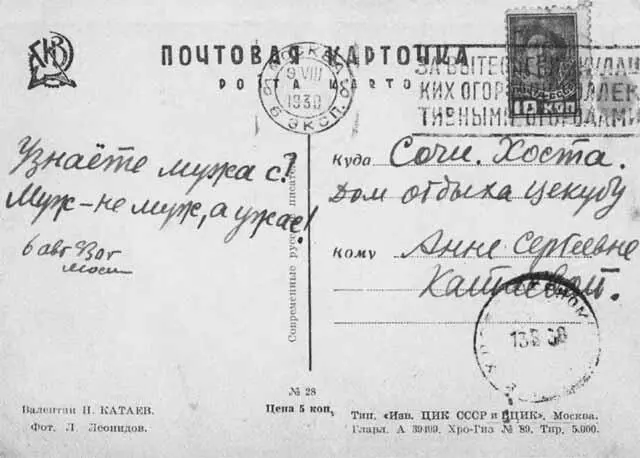 ПОЧТОВАЯ КАРТОЧКА
МОСКВА
9 VIII
1930
6 ЭКСП.
КИХ ОГОРОДОВ
ТИВНЫМИ ОГОРОДАМИ
10 КОП
Узнаёте мужа с?
Муж – не муж, а ужас!
6 авг 30 г
Современные русские писатели
Куда Сочи. Хоста.
Дом отдыха Цекубу
Кому Анне Сергеевне
Катаевой.
13 8 30
№ 28
Цена 5 коп.
Валентин П. КАТАЕВ.
Фот. Л. Леонидов.
Тип. «Изв. ЦИК СССР и ВЦИК». Москва.
Главл. А 39499. Хро-Гиз № 89. Тир. 5.000.